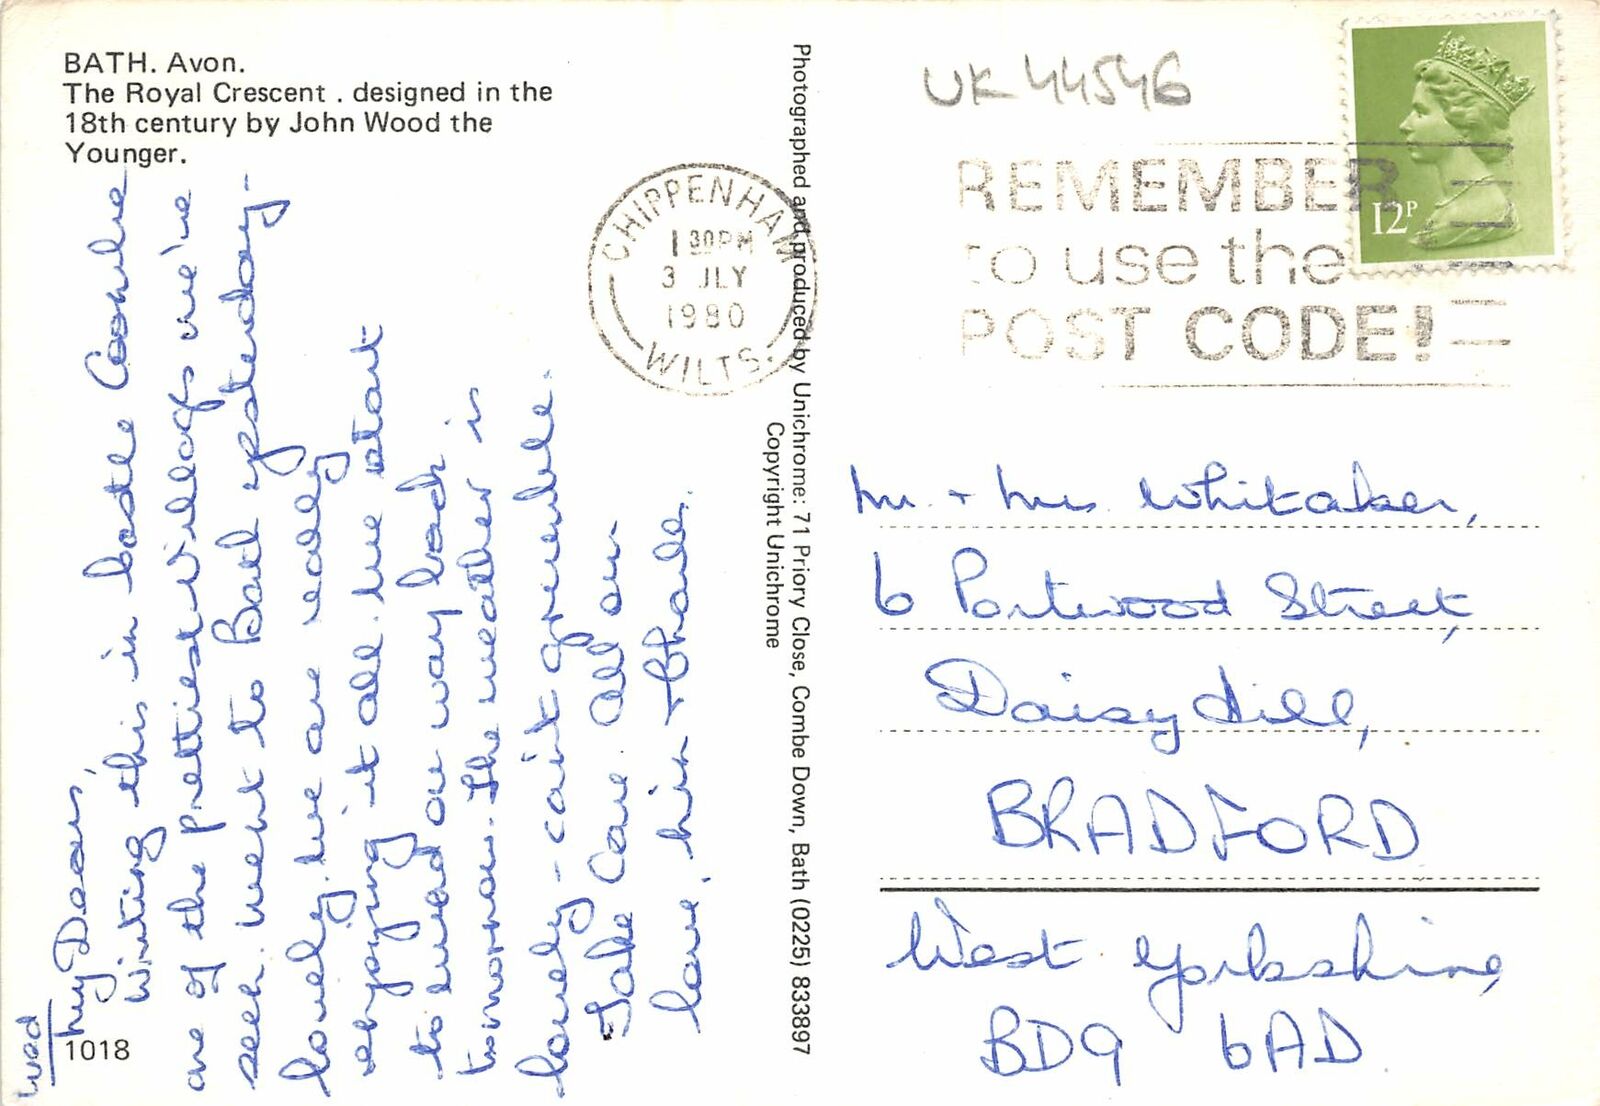 BATH. Avon.
The Royal Crescent . designed in the
18th century by John Wood the
Younger.
Wed
My Dears,
Writing this in Castle Combe
one of the prettiest villages we've
seen. Went to Bath yesterday -
lovely. We are really
enjoying it all. We start
to wend our way back
tomorrow. The weather is
lovely - can't grumble.
Take Care. All our
love, + Charlie.
1018
Photographed and produced by Unichrome: 71 Priory Close, Combe Down, Bath (0225) 833897
Copyright Unichrome
CHIPPENHAM
1 30PM
3 JLY
1980
WILTS.
UK 44546
REMEMBER
to use the
POST CODE!
12P
Mr. + Mrs Whitaker,
6 Portwood Street,
Daisy Hill,
BRADFORD
West Yorkshire,
BD9 6AD